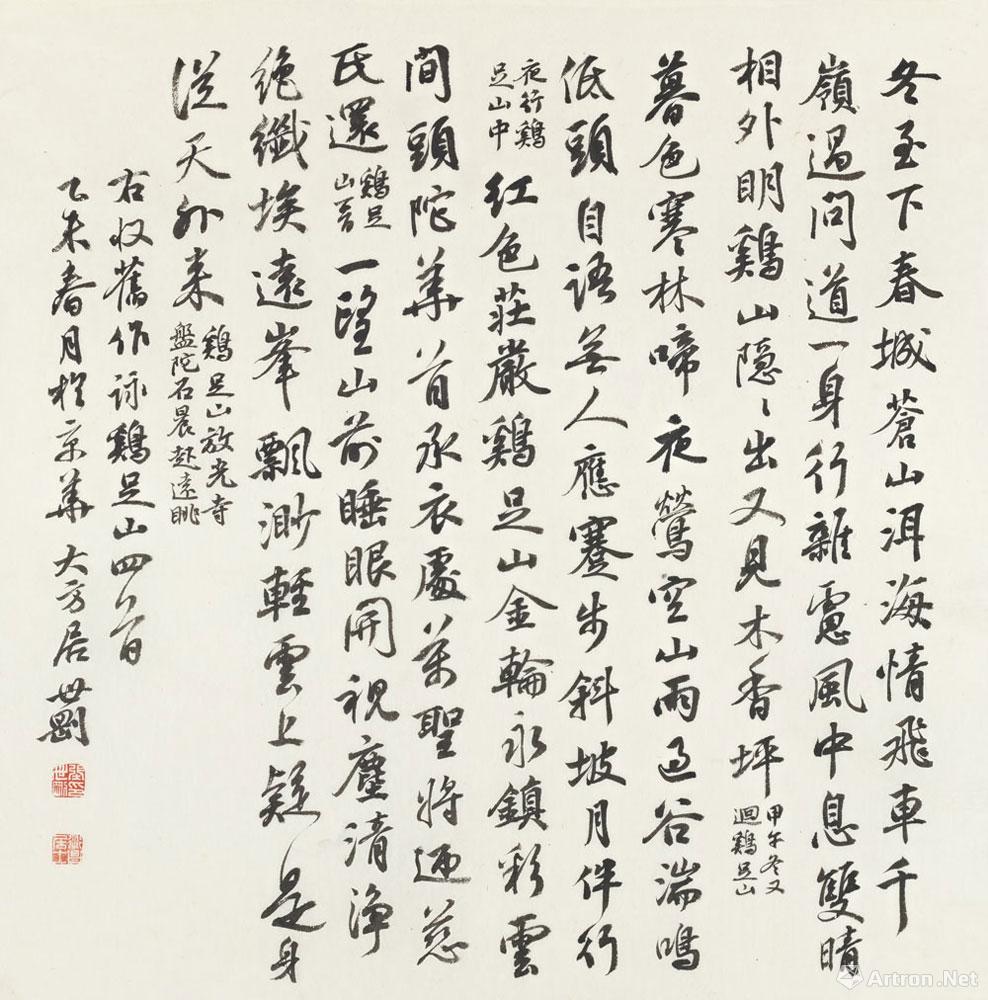 冬至下春城蒼山洱海情飛車千
嶺過問道一身行雜慮風中息雙晴
相外明鷄山隱〻出又見木香坪
甲午冬又
迴鷄足山
暮色寒林啼夜鶯空山雨過谷湍鳴
低頭自語無人應蹇步斜坡月伴行
夜行鷄
足山中
紅色莊嚴鷄足山金輪永鎮彩雲
間頭陀華首承衣處萬聖將迎慈
氏還
鷄足
山
一望山前睡眼開視塵清净
絶纖埃遠峯飄渺輕雲上疑是身
從天外来
鷄足山放光寺
盤陀石晨起遠眺
右收舊作詠鷄足山四首
乙未春月於京華大方居世剛
Artron.Net